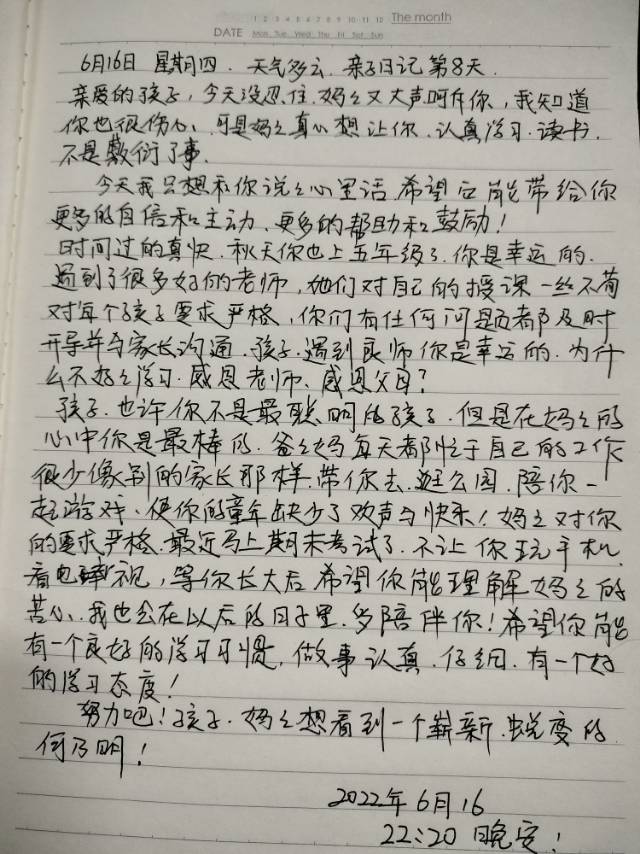 1 2 3 4 5 6 7 8 9 10 11 12 The month
DATE Mon. Tue. Wed. Thu. Fri. Sat. Sun.
6月16日 星期四. 天气多云. 亲子日记第8天.
亲爱的孩子,今天没忍住.妈妈又大声呵斥你,我知道
你也很伤心、可是妈妈真心想让你.认真学习.读书.
不是敷衍了事.
今天我只想和你说说心里话.希望它能带给你
更多的自信和主动、更多的帮助和鼓励!
时间过的真快.秋天你也上五年级了.你是幸运的.
遇到了很多好的老师,她们对自己的授课一丝不苟
对每个孩子要求严格,你们有任何问题都及时
开导并与家长沟通.孩子.遇到良师你是幸运的.为什
么不好好学习.感恩老师、感恩父母?
孩子.也许你不是最聪明的孩子.但是在妈妈的
心中你是最棒的.爸爸妈每天都忙于自己的工作
很少像别的家长那样.带你去.逛公园.陪你一
起游戏、使你的童年缺少了欢声与快乐!妈妈对你
的要求严格.最近马上期末考试了.不让你玩手机.
看电视,等你长大后希望你能理解妈妈的
苦心.我也会在以后的日子里.多陪伴你!希望你能
有一个良好的学习习惯,做事认真.仔细.有一个好
的学习态度!
努力吧!孩子.妈妈想看到一个崭新.蜕变的
何乃明!
2022年6月16
22:20 晚安!